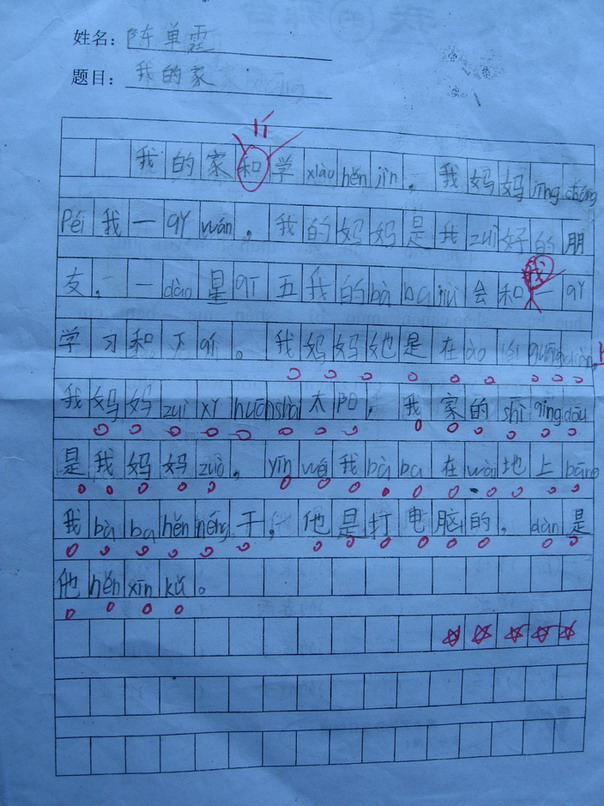 姓名：陈单霆
题目：我的家
我的家和学xiào hěn jìn。我妈妈jīng cháng
Péi我一qǐ wán。我的妈妈是我zuì好的朋
友。一dào星qī五我的bà ba jiù会和我一qǐ
学习和下qí。我妈妈她是在
我妈妈zuì xǐ huān shài太Pō，我家的shī qing dōu
是我妈妈zuò。yīn wéi我bà ba在wài地上bāng
我bà ba hěn néng干，他是打电脑的。dàn是
他hěn xīn kǔ。